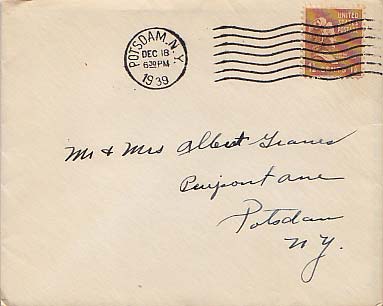 POTSDAM, N.Y.
DEC 18
6 30 PM
1939
UNITED
STATES
POSTAGE
Mr & Mrs Albert Graves
Pierpont ave
Potsdam
N Y.